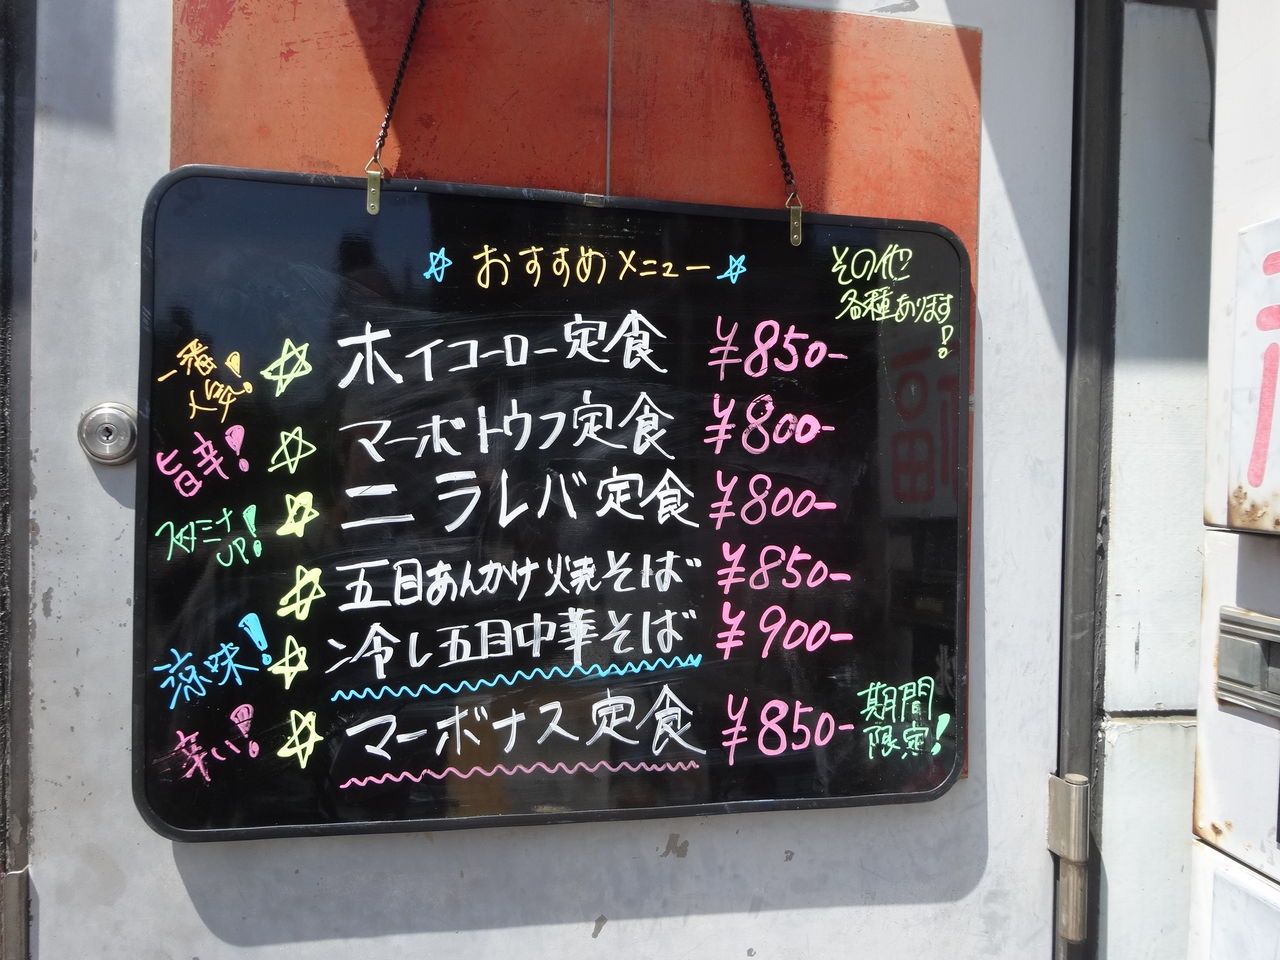 ☆ おすすめメニュー ☆
その他
各種あります!
一番
人気!
☆ ホイコーロー定食 ¥850-
旨辛!
☆ マーボトウフ定食 ¥800-
スタミナ
UP!
☆ ニラレバ定食 ¥800-
☆ 五目あんかけ焼そば ¥850-
涼味!
☆ 冷し五目中華そば ¥900-
辛い!
☆ マーボナス定食 ¥850-
期間
限定!